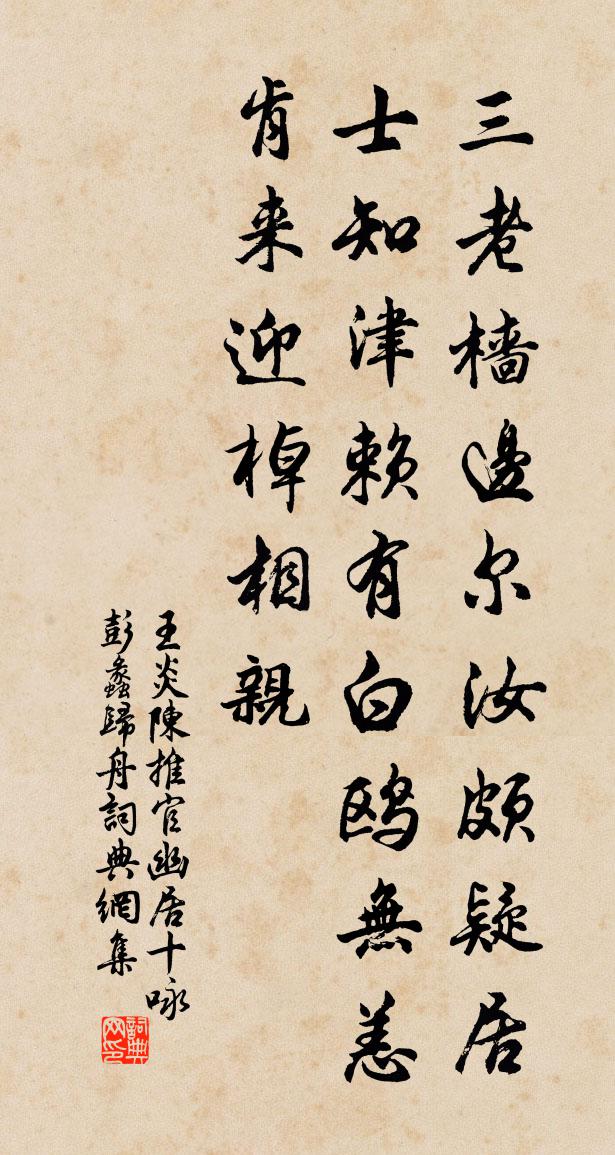 三老檣邊尔汝頗疑居
士知津賴有白鸥無恙
肯来迎棹相親
王炎陳推官幽居十咏
彭蠡歸舟詞典網集
詞典网印